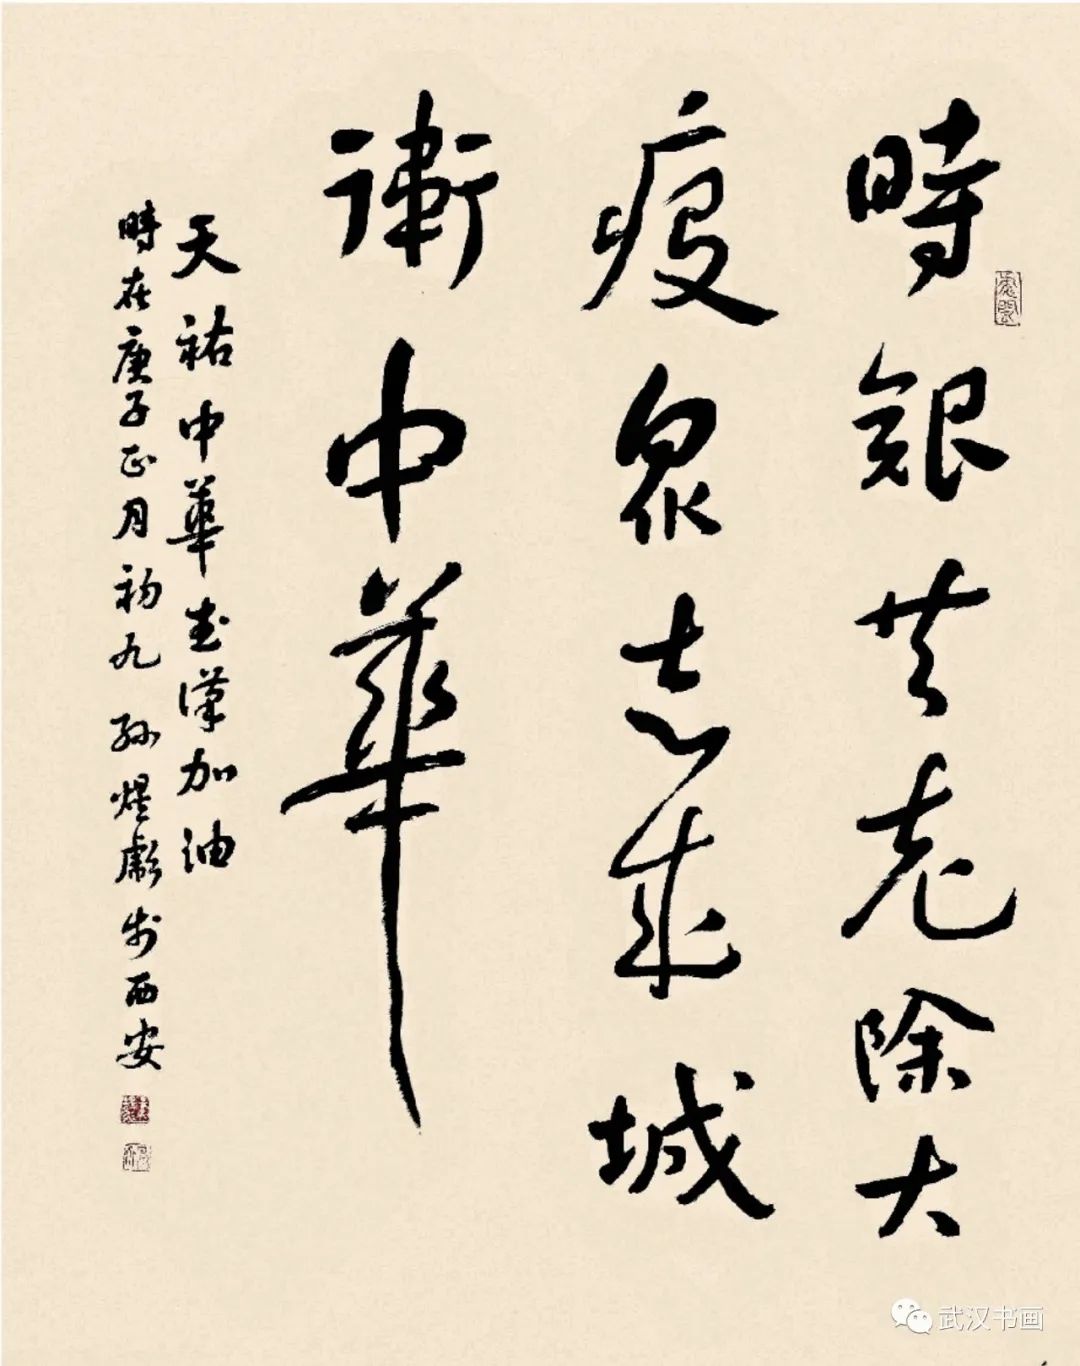 時艱共克除大
疫衆志成城
衛中華
天祐中華武漢加油
時在庚子正月初九 孫煜獻於西安
武汉书画